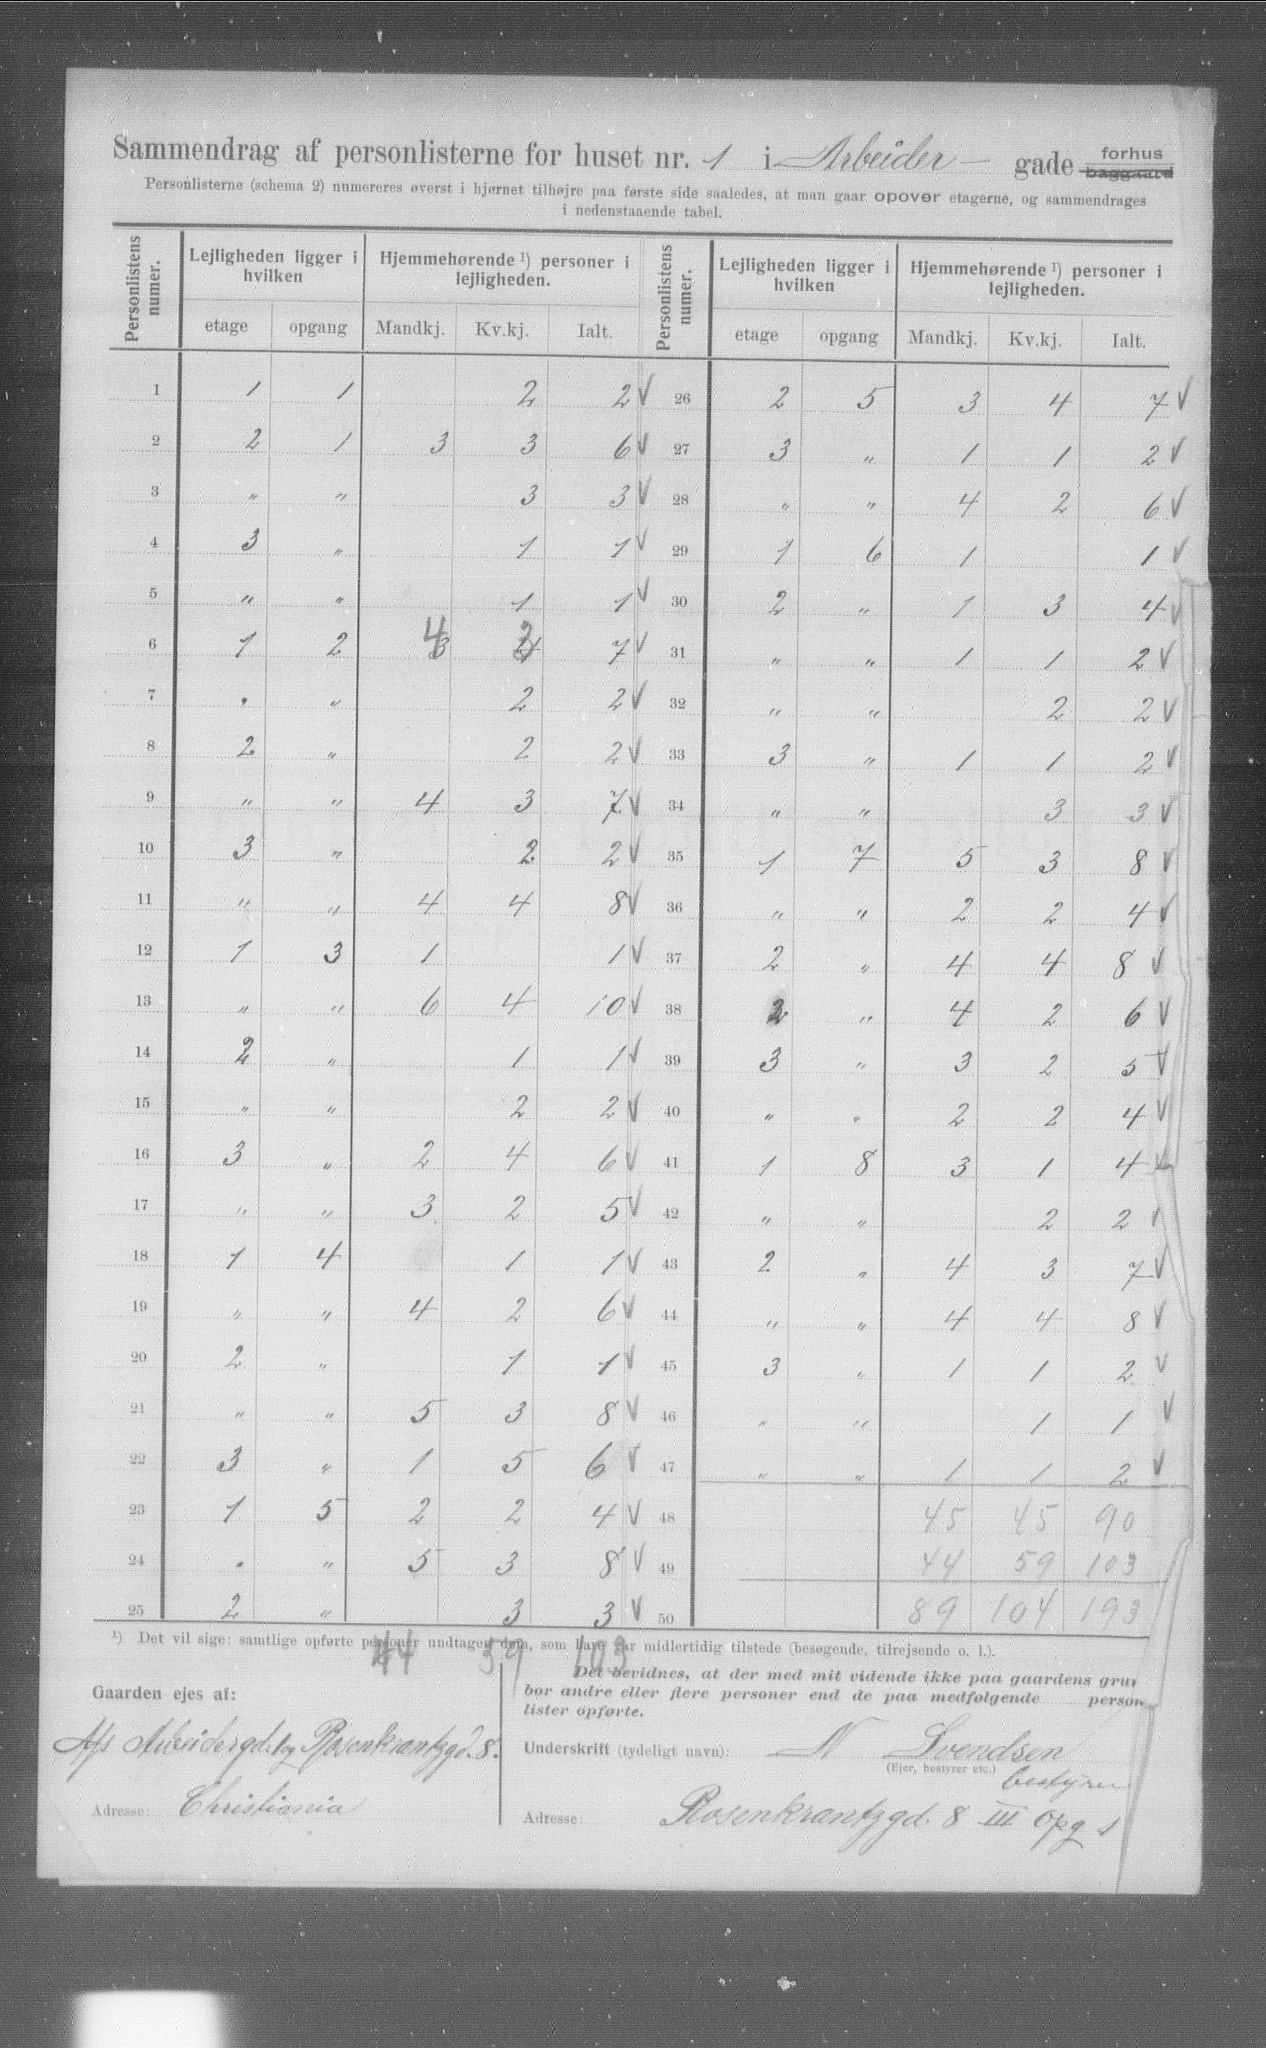 Sammendrag af personlisterne for huset nr. 1 i Arbeider- gade forhus baggaard
Personlisterne (schema 2) numereres øverst i hjørnet tilhøjre paa første side saaledes, at man gaar opover etagerne, og sammendrages
i nedenstaaende tabel.
Personlistens numer. Lejligheden ligger i hvilken Hjemmehørende ¹) personer i lejligheden. Personlistens numer. Lejligheden ligger i hvilken Hjemmehørende ¹) personer i lejligheden.
etage opgang Mandkj. Kv.kj. Ialt. etage opgang Mandkj. Kv.kj. Ialt.
1 1 1 2 2 √ 26 2 5 3 4 7 √
2 2 1 3 3 6 √ 27 3 " 1 1 2 √
3 " " 3 3 √ 28 " " 4 2 6 √
4 3 " 1 1 √ 29 1 6 1 1 √
5 " " 1 1 √ 30 2 " 1 3 4 √
6 1 2 4 3 7 √ 31 " " 1 1 2 √
7 " " 2 2 √ 32 " " 2 2 √
8 2 " 2 2 √ 33 3 " 1 1 2 √
9 " " 4 3 7 √ 34 " " 3 3 √
10 3 " 2 2 √ 35 1 7 5 3 8 √
11 " " 4 4 8 √ 36 " " 2 2 4 √
12 1 3 1 1 √ 37 2 " 4 4 8 √
13 " " 6 4 10 √ 38 2 " 4 2 6 √
14 2 " 1 1 √ 39 3 " 3 2 5 √
15 " " 2 2 √ 40 " " 2 2 4 √
16 3 " 2 4 6 √ 41 1 8 3 1 4 √
17 " " 3 2 5 √ 42 " " 2 2 √
18 1 4 1 1 √ 43 2 " 4 3 7 √
19 " " 4 2 6 √ 44 " " 4 4 8 √
20 2 " 1 1 √ 45 3 " 1 1 2 √
21 " " 5 3 8 √ 46 " " 1 1 √
22 3 " 1 5 6 √ 47 " " 1 1 2 √
23 1 5 2 2 4 √ 48 45 45 90
24 " " 5 3 8 √ 49 44 59 103
25 2 " 3 3 √ 50 89 104 193
¹) Det vil sige: samtlige opførte personer undtagen dem, som bare var midlertidig tilstede (besøgende, tilrejsende o. l.).
44 59 103
Gaarden ejes af:
A/s Arbeidergd. 1 og Rosenkrantzgd. 8.
Adresse: Christiania
Det bevidnes, at der med mit vidende ikke paa gaardens grun
bor andre eller flere personer end de paa medfølgende person
lister opførte.
Underskrift (tydeligt navn): N Svendsen
(Ejer, bestyrer etc.) bestyrer
Adresse: Rosenkrantzgd 8 III Opg 1